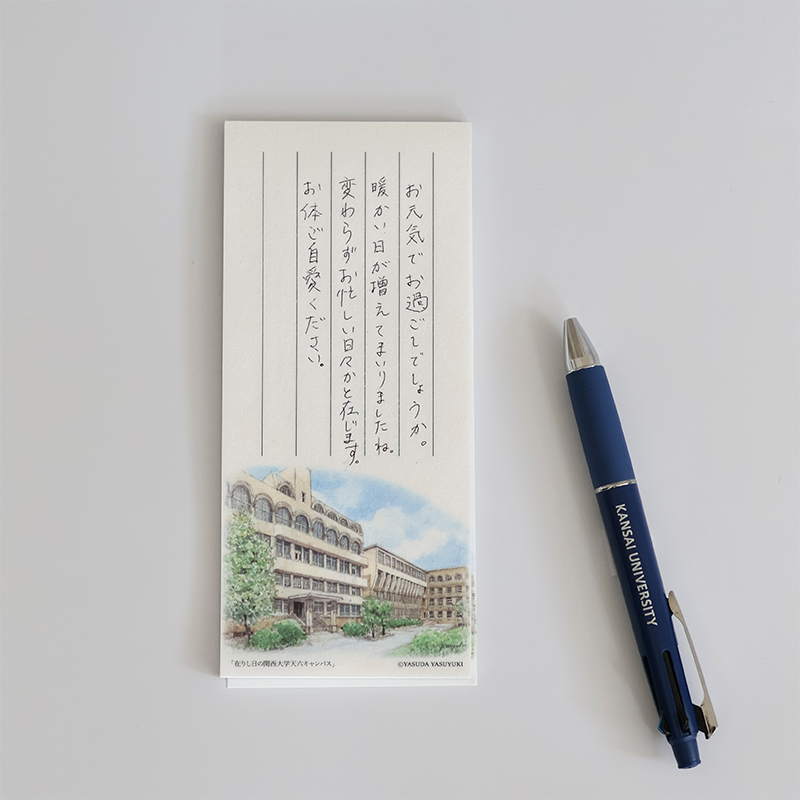 お元気でお過ごしでしょうか。
暖かい日が増えてまいりましたね。
変わらずお忙しい日々かと在じます。
お体ご自愛ください。
「在りし日の関西大学天六キャンパス」
©YASUDA YASUYUKI
KANSAI UNIVERSITY